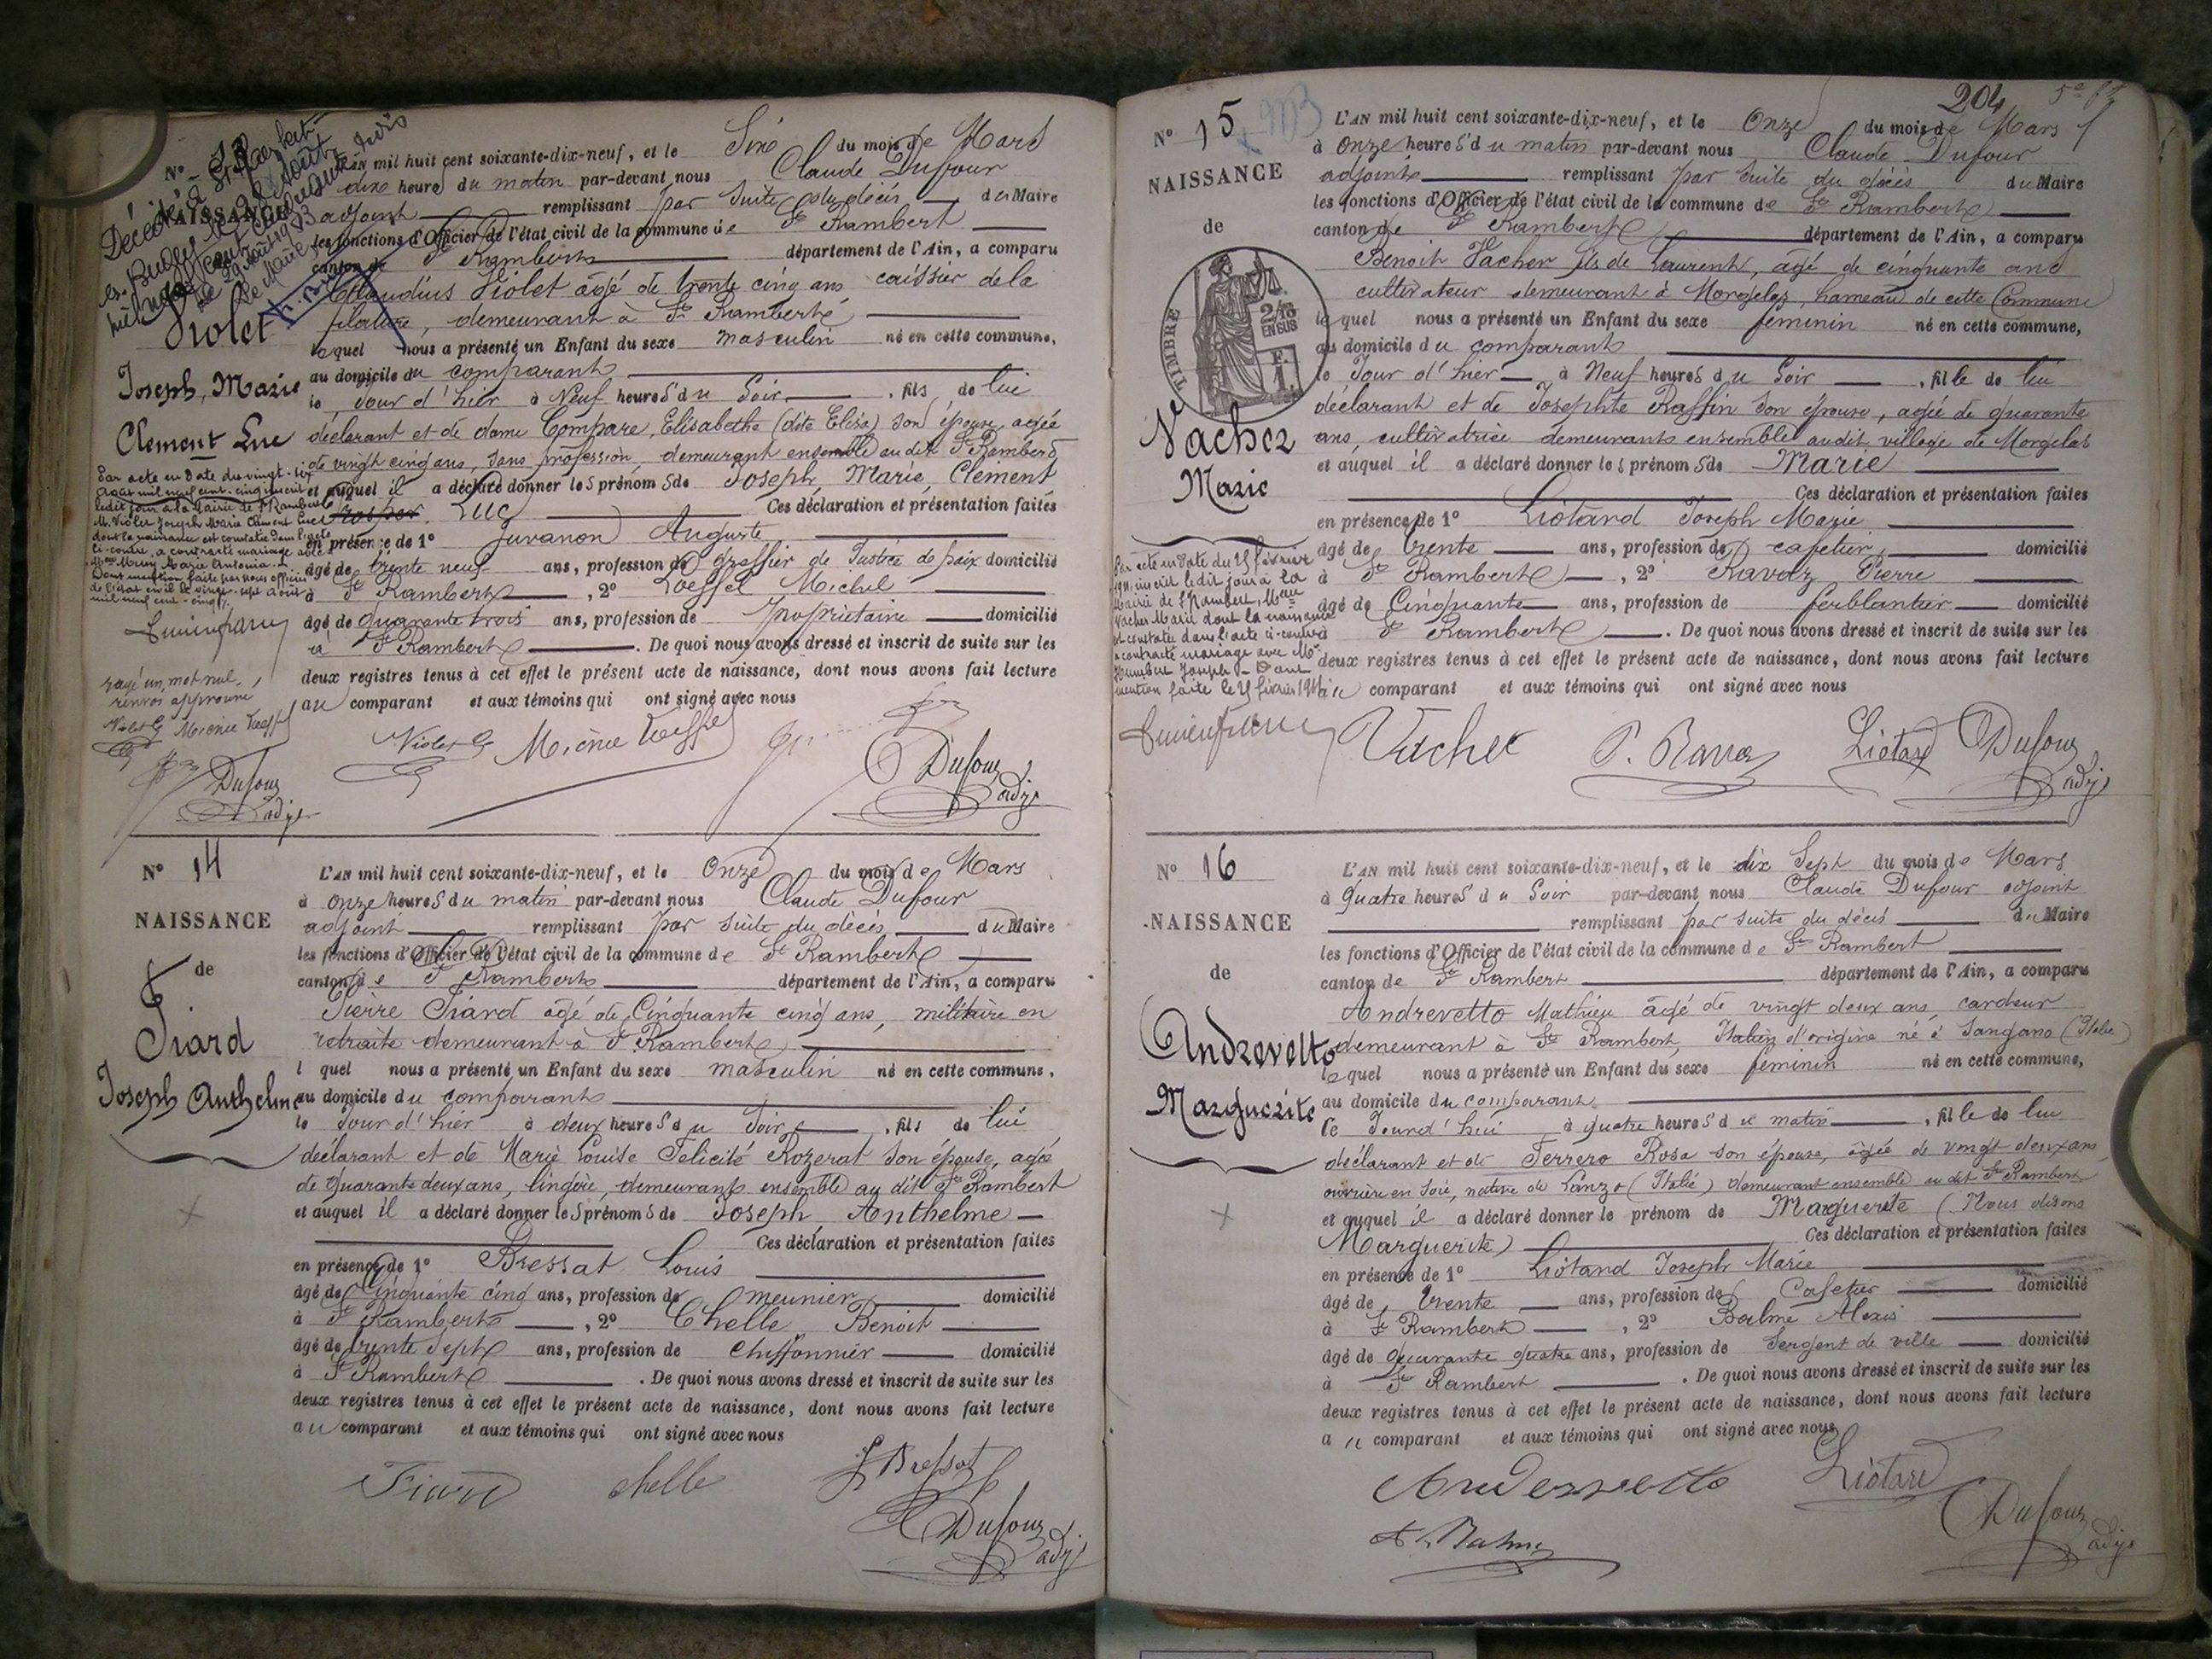 N° 13
L'AN mil huit cent soixante-dix-neuf, et le Six du mois de Mars
à dix heures du matin par-devant nous Claude Dufour
NAISSANCE
adjoint remplissant par suite du décès du Maire
les fonctions d'Officier de l'état civil de la commune de St Rambert
canton de St Rambert département de l'Ain, a comparu
Claudius Violet âgé de trente cinq ans caissier de la
Violet
filature, demeurant à St Rambert
lequel nous a présenté un Enfant du sexe masculin né en cette commune,
Joseph, Marie
au domicile du comparant
le jour d'hier à Neuf heures du Soir, fils de lui
Clement Luc
déclarant et de dame Compare, Elisabethe (dite Elisa) son épouse, agée
de vingt cinq ans, sans profession, demeurant ensemble au dit St Rambert
et auquel il a déclaré donner les prénoms de Joseph, Marie, Clément
Luc Ces déclaration et présentation faites
en présence de 1° Juvanon Auguste
âgé de trente neuf ans, profession de greffier de Justice de paix domicilié
à St Rambert, 2° Loeffel Michel
âgé de quarante trois ans, profession de propriétaire domicilié
à St Rambert. De quoi nous avons dressé et inscrit de suite sur les
deux registres tenus à cet effet le présent acte de naissance, dont nous avons fait lecture
au comparant et aux témoins qui ont signé avec nous
Par acte en date du vingt-six
Août mil neuf cent-cinq inscrit
ledit jour à la Mairie de St Rambert
M. Violet Joseph Marie Clément Luc
dont la naissance est constatée dans l'acte
ci-contre, a contracté mariage avec
Marie Antonia.
Dont mention faite par nous officier
de l'état civil le vingt-sept Août
mil neuf cent-cinq.
rayé un mot nul,
renvoi approuvé
Violet
Dufour
adj.
Violet
Dufour
adj.
N° 14
L'AN mil huit cent soixante-dix-neuf, et le Onze du mois de Mars
à onze heures du matin par-devant nous Claude Dufour
NAISSANCE
adjoint remplissant par suite du décès du Maire
les fonctions d'Officier de l'état civil de la commune de St Rambert
de
canton de St Rambert département de l'Ain, a comparu
Pierre Fiard âgé de Cinquante cinq ans, militaire en
Fiard
retraite demeurant à St Rambert
l quel nous a présenté un Enfant du sexe masculin né en cette commune,
Joseph Anthelme
au domicile du comparant
le Jour d'hier à deux heures du Soir, fils de lui
déclarant et de Marie Louise Felicité Rozerat son épouse, agée
de quarante deux ans, lingère, demeurant ensemble au dit St Rambert
et auquel il a déclaré donner les prénoms de Joseph, Anthelme
Ces déclaration et présentation faites
en présence de 1° Bressat Louis
âgé de Cinquante cinq ans, profession de meunier domicilié
à St Rambert, 2° Chelle Benoit
âgé de trente Sept ans, profession de chiffonnier domicilié
à St Rambert. De quoi nous avons dressé et inscrit de suite sur les
deux registres tenus à cet effet le présent acte de naissance, dont nous avons fait lecture
au comparant et aux témoins qui ont signé avec nous
Fiard chelle Bressat
Dufour
adj.
204
N° 15
L'AN mil huit cent soixante-dix-neuf, et le Onze du mois de Mars
à onze heures du matin par-devant nous Claude Dufour
NAISSANCE
adjoint remplissant par suite du décès du Maire
les fonctions d'Officier de l'état civil de la commune de St Rambert
de
canton de St Rambert département de l'Ain, a comparu
Benoit Vacher fils de Laurent, agé de cinquante ans
cultivateur demeurant à Morgelas, hameau de cette Commune
TIMBRE
2/10
EN SUS
F.
1
lequel nous a présenté un Enfant du sexe féminin né en cette commune,
au domicile du comparant
le Jour d'hier à Neuf heures du Soir, fille de lui
déclarant et de Josephte Raffin son épouse, agée de quarante
Vacher
ans, cultivatrice demeurants ensemble audit village de Morgelas
et auquel il a déclaré donner les prénoms de Marie
Marie
Ces déclaration et présentation faites
en présence de 1° Liotard Joseph Marie
âgé de trente ans, profession de cafetier, domicilié
à St Rambert, 2° Ravaz Pierre
âgé de Cinquante ans, profession de ferblantier domicilié
à St Rambert. De quoi nous avons dressé et inscrit de suite sur les
deux registres tenus à cet effet le présent acte de naissance, dont nous avons fait lecture
au comparant et aux témoins qui ont signé avec nous
Mairie de St Rambert, Melle
Vacher Marie dont la naissance
est constatée dans l'acte ci-contre
a contracté mariage avec Mr
Humbert Joseph
Vacher P. Ravaz Liotard Dufour
adj.
N° 16
L'AN mil huit cent soixante-dix-neuf, et le dix Sept du mois de Mars
à quatre heures du Soir par-devant nous Claude Dufour adjoint
NAISSANCE
remplissant par suite du décès du Maire
les fonctions d'Officier de l'état civil de la commune de St Rambert
de
canton de St Rambert département de l'Ain, a comparu
Andrevetto Mathieu âgé de vingt deux ans, cardeur
Andrevetto
demeurant à St Rambert, Italien d'origine né à Sangano (Italie)
lequel nous a présenté un Enfant du sexe féminin né en cette commune,
Marguerite
au domicile du comparant
le Jourd'hui à quatre heures du matin, fille de lui
déclarant et de Ferrero Rosa son épouse, âgée de vingt deux ans
ouvrière en soie, native de Lanzo (Italie) demeurant ensemble au dit St Rambert
et auquel il a déclaré donner le prénom de Marguerite (Nous disons
Marguerite) Ces déclaration et présentation faites
en présence de 1° Liotard Joseph Marie
âgé de trente ans, profession de Cafetier domicilié
à St Rambert, 2° Balme Alexis
âgé de quarante quatre ans, profession de Sergent de ville domicilié
à St Rambert. De quoi nous avons dressé et inscrit de suite sur les
deux registres tenus à cet effet le présent acte de naissance, dont nous avons fait lecture
au comparant et aux témoins qui ont signé avec nous
Andrevetto Liotard
Dufour
adj.